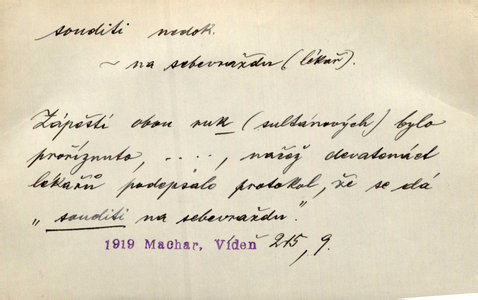 souditi nedok.
~ na sebevraždu (lékař).
Zápěstí obou ruk (sultánových) bylo
proříznuto, . . . ., načež devatenáct
lékařů podepsalo protokol, že se dá
„souditi na sebevraždu."
1919 Machar, Vídeň 215, 9.